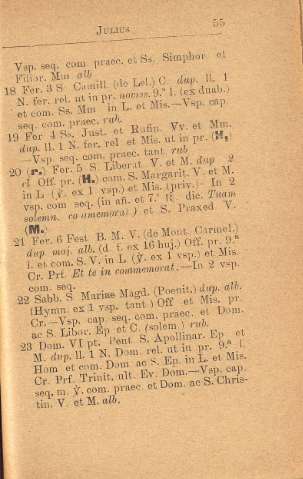 JULIUS 55
Vsp. seq. com praec. et Ss. Simphor et
Filior. Mm alb
18 Fer. 3 S Camill. (de Lel.) C. dup. ll. 1
N. fer. rel. ut in pr. noviss. 9.ª l. (ex duab.)
et com. Ss. Mm in L et Mis.—Vsp. cap.
seq. com. praec. rub.
19 Fer. 4 Ss. Just. et Rufin. Vv. et Mm.
dup. ll. 1 N. fer. rel et Mis. ut in pr. (H,)
—Vsp. seq. com. praec. tant. rub
20 (r.) Fer. 5 S. Liberat V. et M. dup 2
cl Off. pr. (H.) com. S. Margarit. V. et M.
in L (℣. ex 1 vsp.) et Mis. (priv.)- In 2
vsp. com seq. (in añ. et 7.ª dic. Tuam
solemn. commemorat) et S Praxed V.
(M.)
21 Fer. 6 Fest B. M. V. (de Mont. Carmel.)
dup maj. alb. (d. f. ex 16 huj.) Off. pr. 9.ª
l. et com. S. V. in L (℣. ex 1 vsp.) et Mis.
Cr. Prf. Et te in commemorat.—In 2 vsp.
com. seq.
22 Sabb. S Mariae Magd. (Poenit.) dup. alb.
(Hymn. ex 1 vsp. tant) Off et Mis. pr.
Cr.—Vsp. cap. seq. com. praec. et Dom.
ac S. Libor. Ep et C. (solem) rub.
23 Dom. VI pt. Pent S. Apollinar. Ep et
M. dup. ll. 1 N. Dom. rel. ut in pr. 9.ª l.
Hom et com. Dom ac S. Ep. in L. et Mis.
Cr. Prf. Trinit. ult. Ev. Dom.—Vsp. cap.
seq. m. ℣. com. praec. et Dom. ac S. Chris-
tin. V. et M. alb.